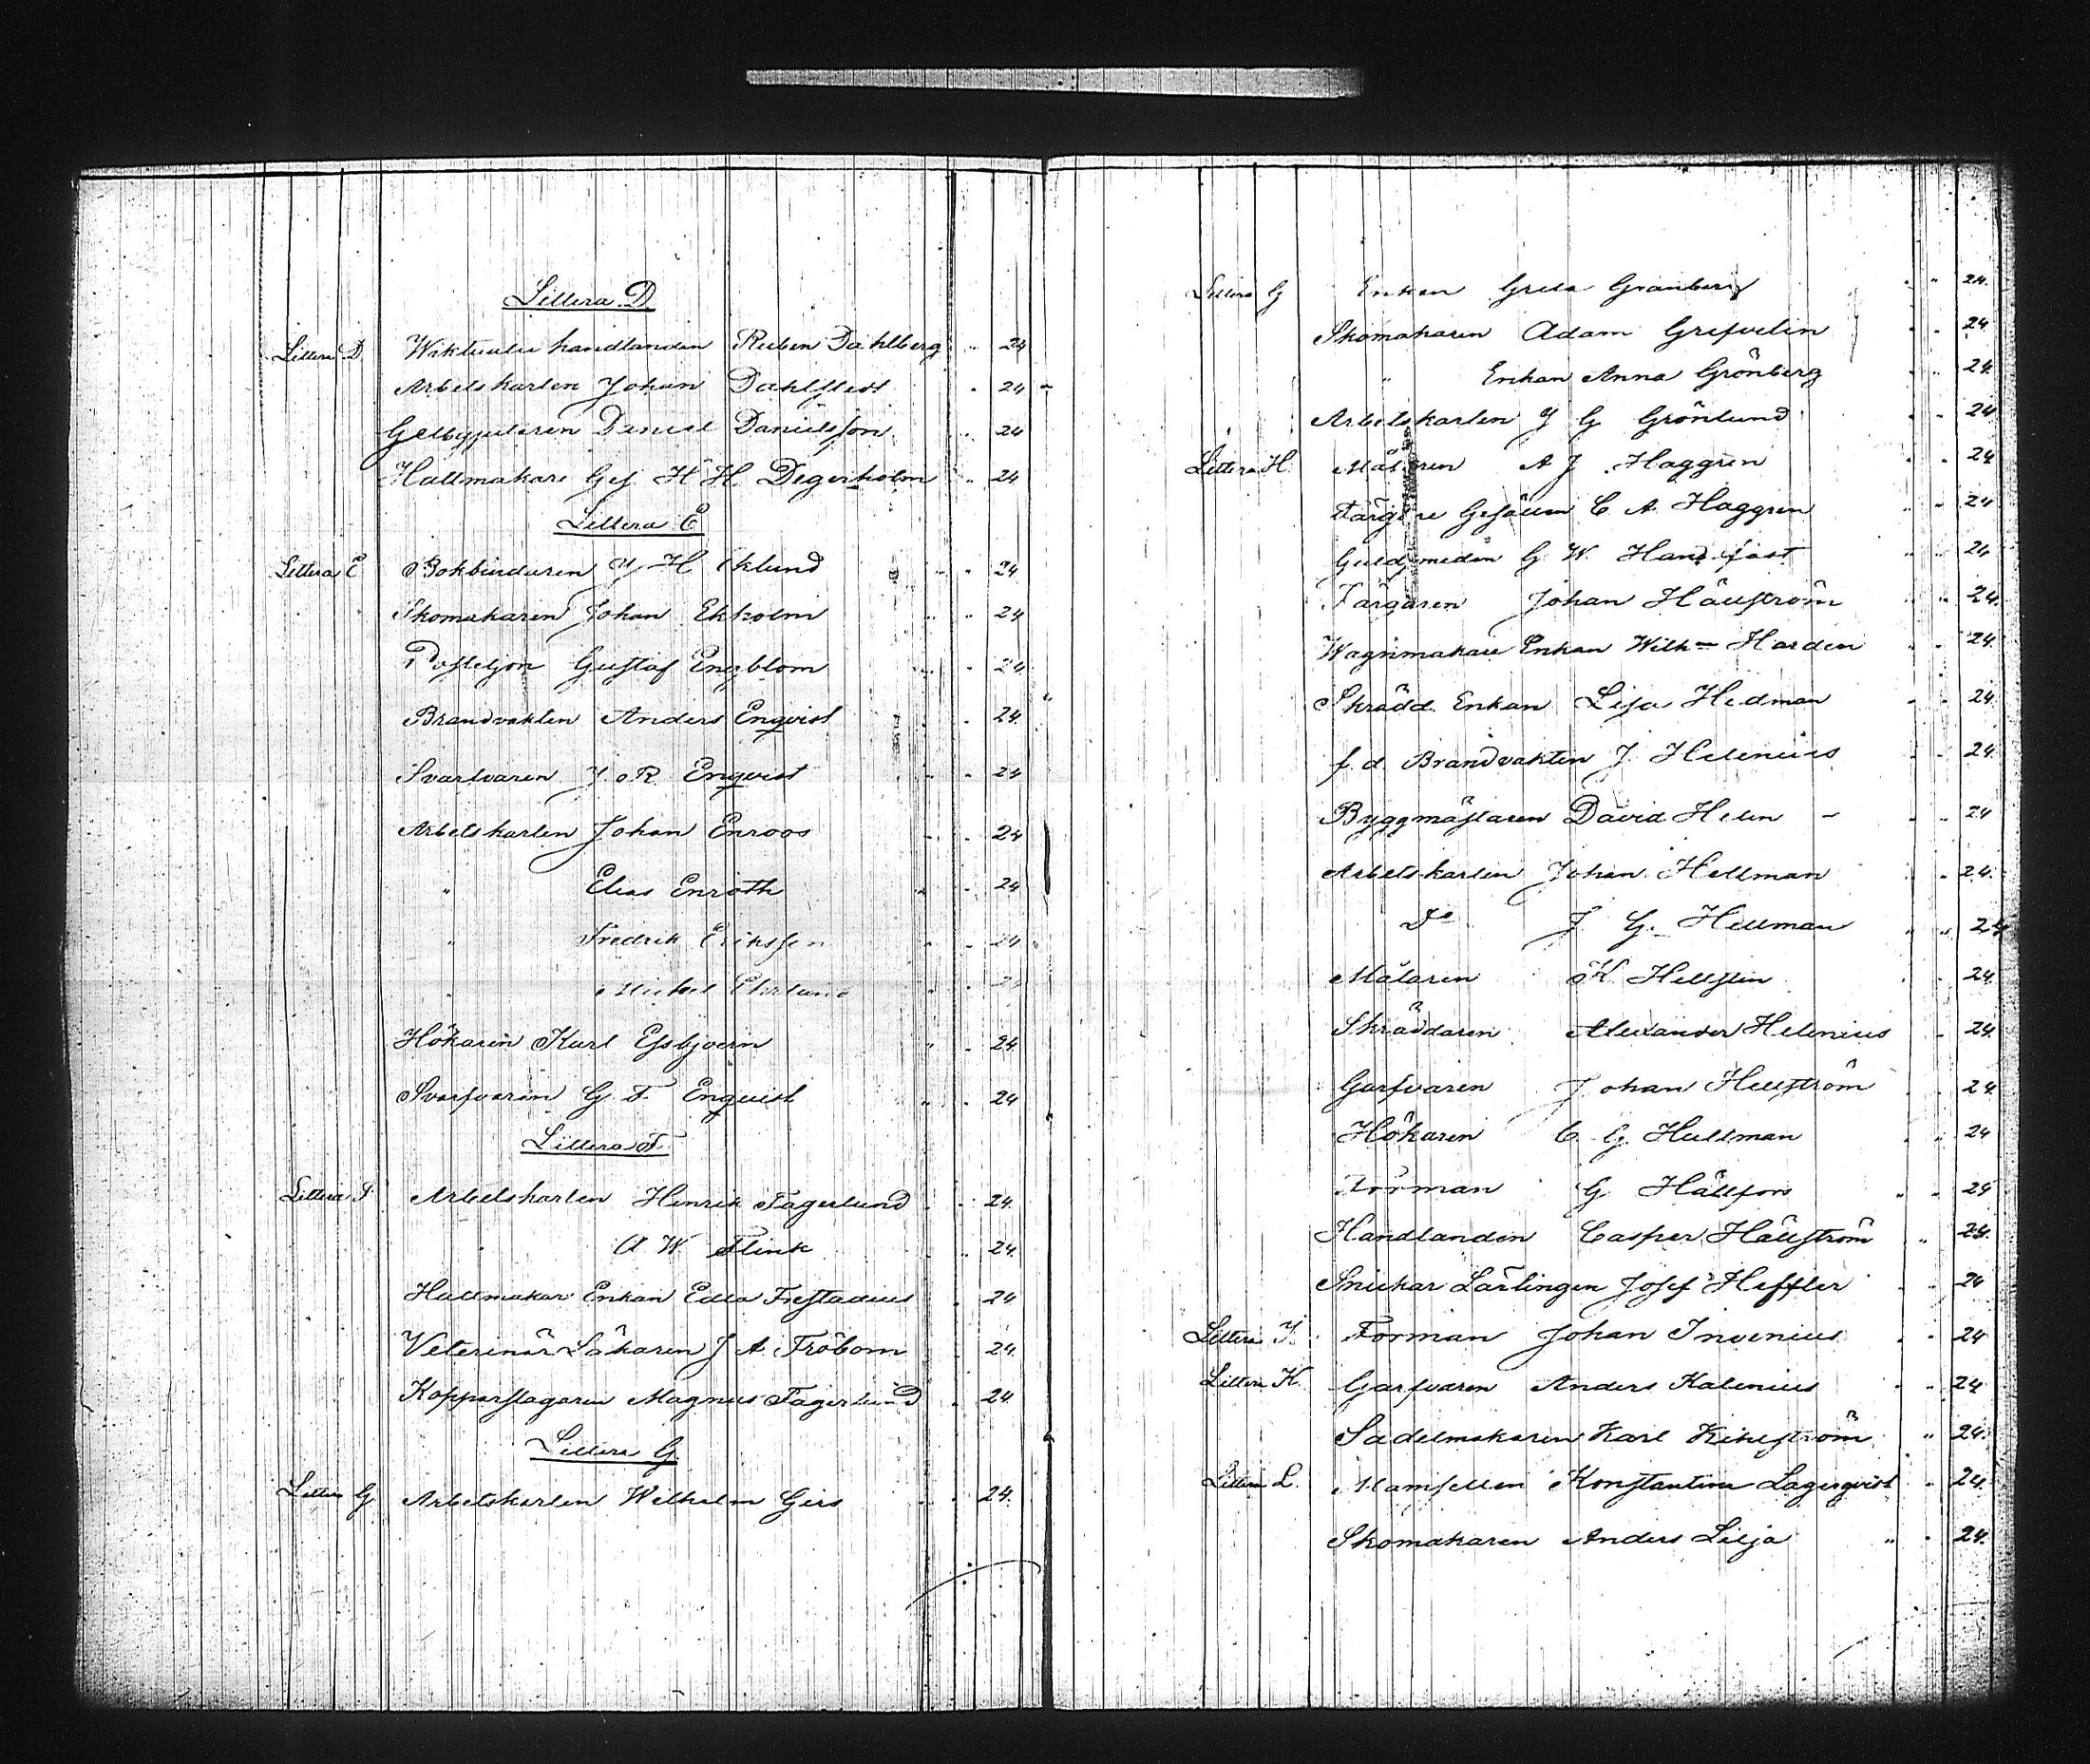 Littera D
Littera D Wiktualie handlanden Ruben Dahlberg " " 24
Arbetskarlen Johan Dahlstedt " 24
Gelbgjutaren Daniel Danielsson " 24
Hattmakare Ges H H Degerholm " 24
Littera E
Littera E Bokbindaren J H Eklund " " 24
Skomakaren Johan Ekholm " " 24
Postiljon Gustaf Engblom " " 24
Brandvakten Anders Enqvist " 24
Svarfvaren J. o R Enqvist " " 24
Arbetskarlen Johan Enroos " " 24
" Elias Enroth " " 24
" Fredrik Eriksson " " 24
" Michel " "
Hökaren Karl Essbjoern " " 24
Svarfvaren G F Enqvist " " 24
Littera F
Littera F Arbetskarlen Henrik Fagerlund " 24
" A W Flink " 24
Hattmakar Enkan Edla Frestadius " 24
Veterinär Läkaren J A Fröbom " 24
Kopparslagaren Magnus Fagerlund " 24
Littera G
Littera G Arbetskarlen Wilhelm Girs " " 24
Littera G Enkan Greta Granberg " " 24
Skomakaren Adam Grefvelin " " 24
" Enkan Anna Grönberg " " 24
Arbetskarlen J G Grönlund " " 24
Littera H. Målaren A J Haggren " " 24
Färgare Gesällen C A Haggren " " 24
Guldsmeden G W Handfast " " 24
Färgaren Johan Hällström " " 24
Wagnmakare Enkan Wilh=a Harden " " 24
Skrädd. Enkan Lisa Hedman " " 24
f. d. Brandvakten J. Helenius " " 24
Byggmästaren David Helen - " " 24
Arbetskarlen Johan Hellman " " 24
Do J G. Hellman " " 24
Målaren K Hellsten " " 24
Skräddaren Alexander Helenius " 24
Garfvaren Johan Hellström " " 24
Hökaren C G Hultman " " 24
Forman G Hällfors " " 24
Handlanden Casper Hällström " 24
Snickar Lärlingen Josef Heffler " " 24
Littera I. Forman Johan Invenius " " 24
Littera K. Garfvaren Anders Kalenius " " 24
Sadelmakaren Karl " 24
Littera L. Mamsellen Konstantina Lagerqvist " 24
Skomakaren Anders Lilja " " 24